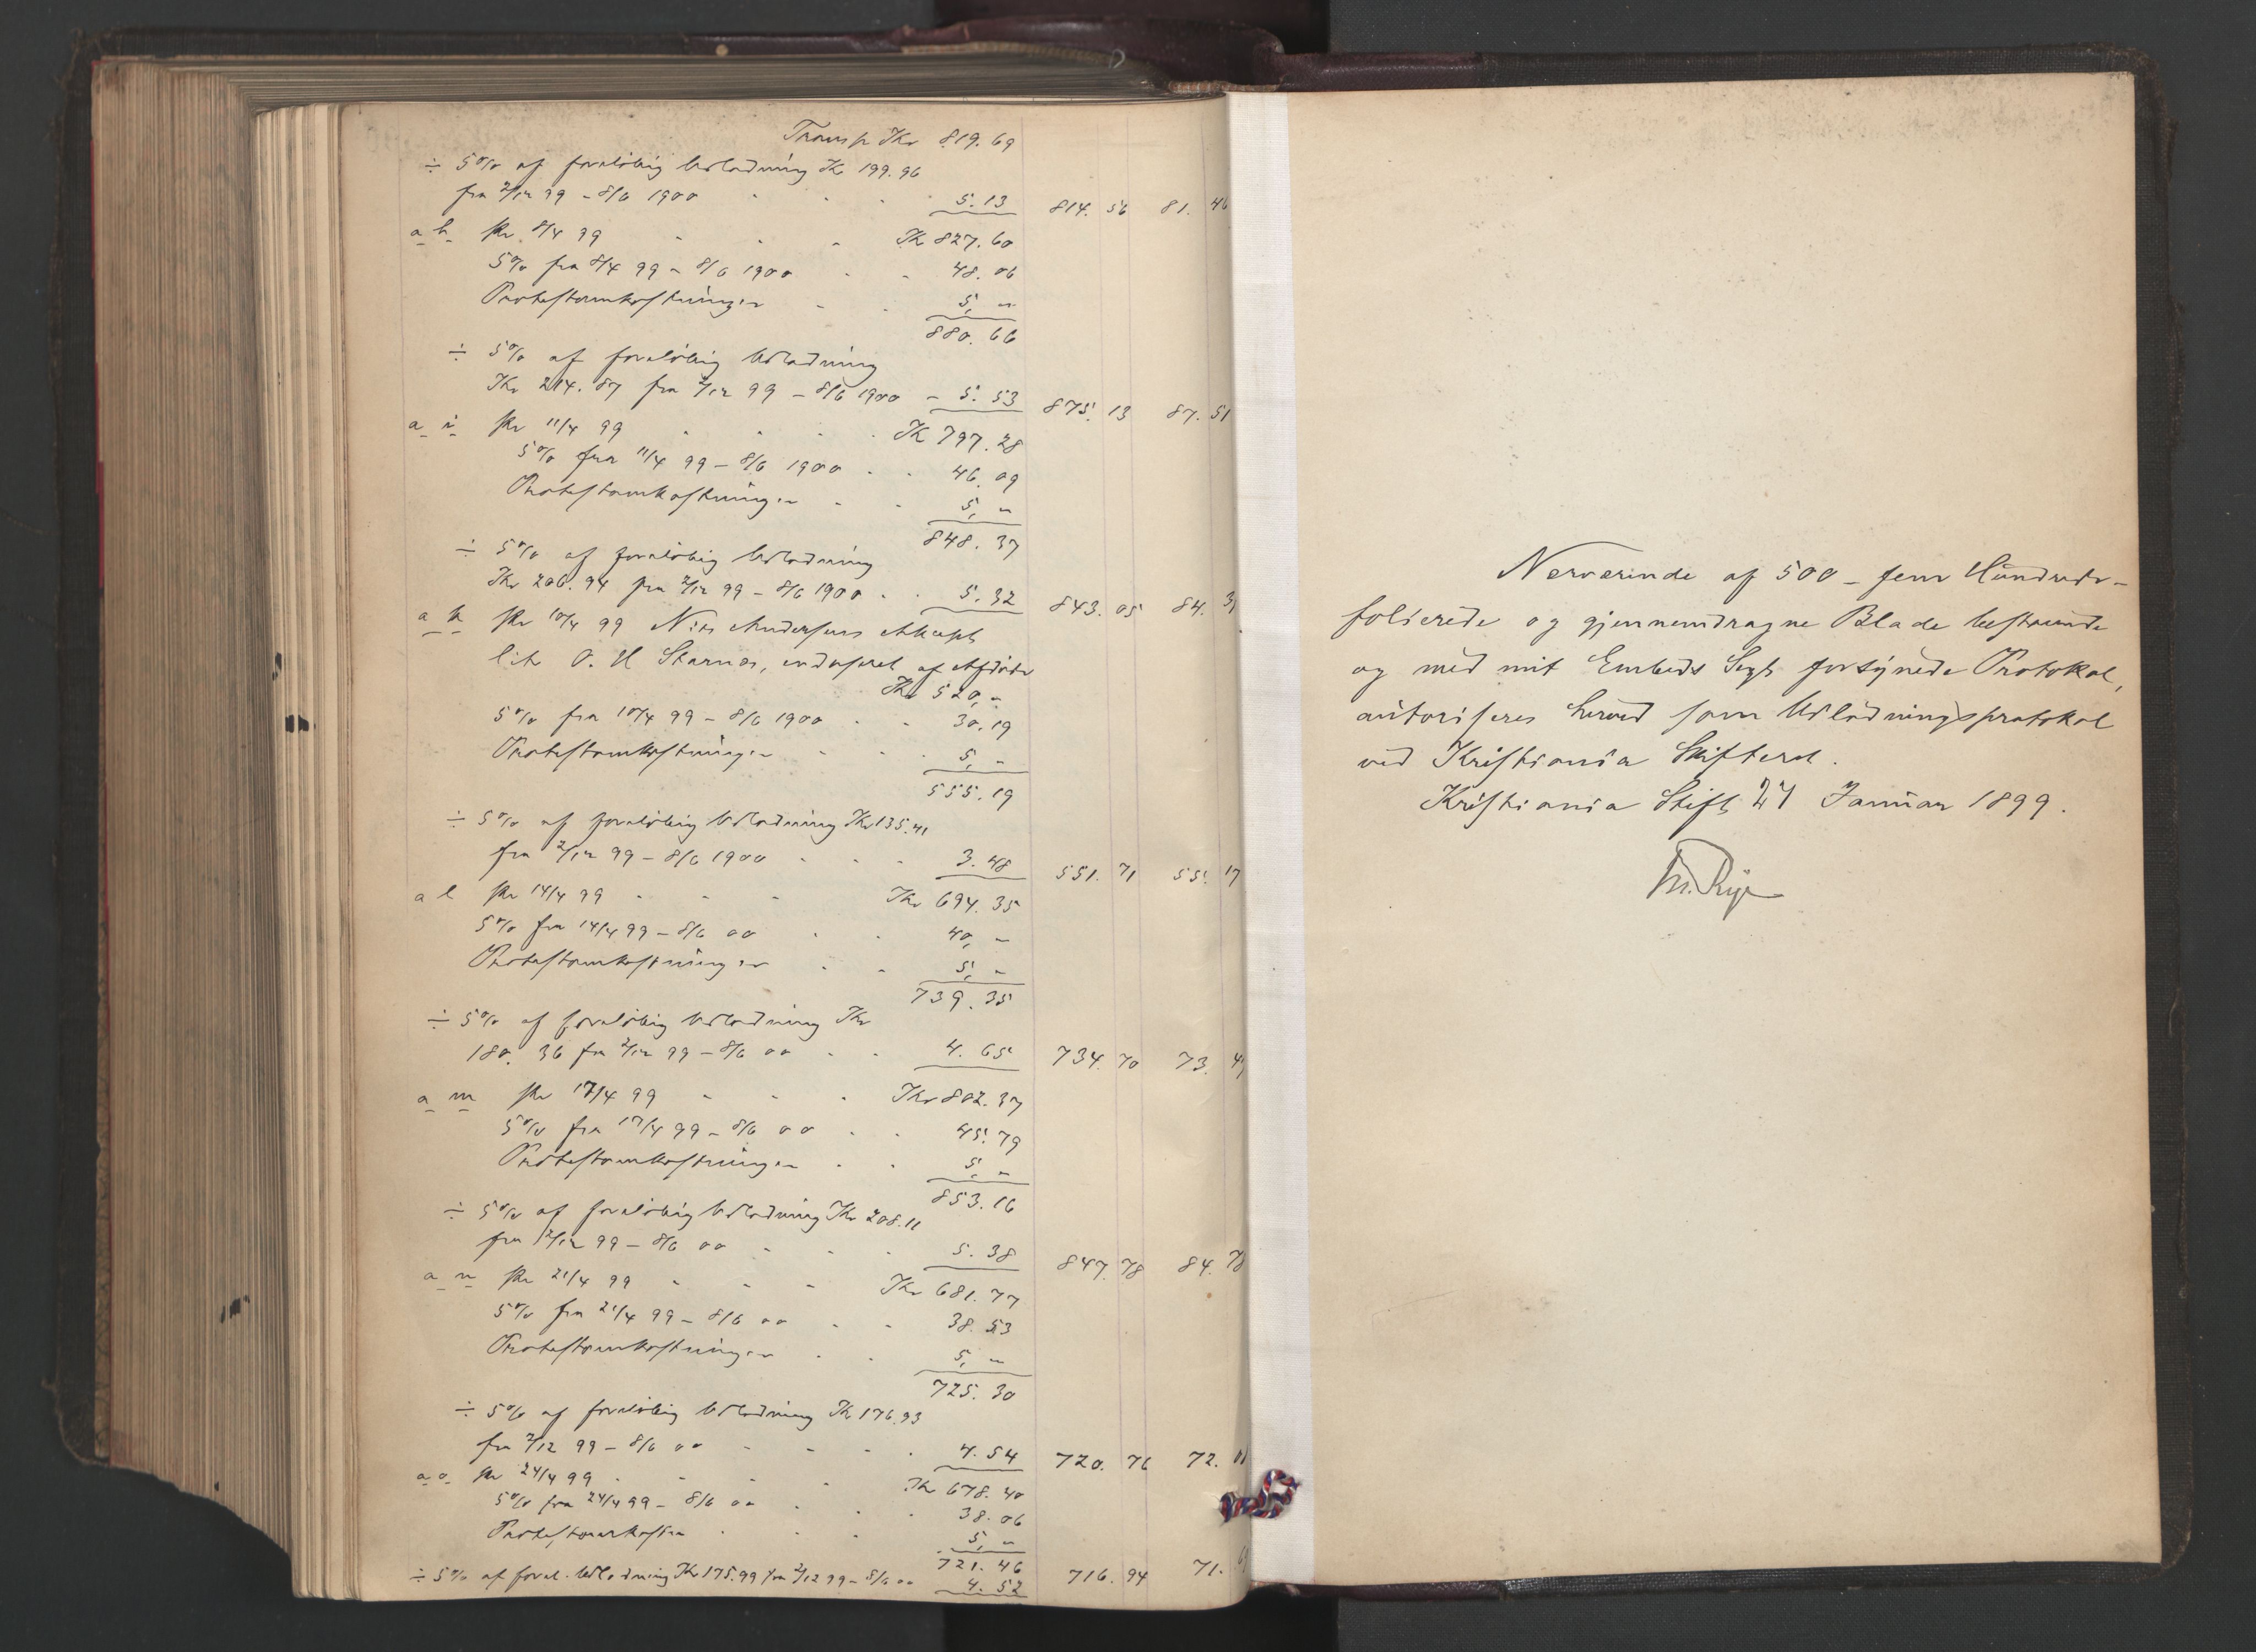 Transp Kr 819.69
÷ 5% af foreløbig Udlodning Kr 199.96
fra 2/12 99 – 8/6 1900 5.13 814.56 81.46
a h pr 8/4 99 Kr 827.60
5% fra 8/4 99 – 8/6 1900 48.06
Protestomkostninger 5,–
880.66
÷ 5% af foreløbig Udlodning
Kr 214.87 fra 2/12 99 – 8/6 1900 – 5.53 875.13 87.51
a i pr 11/4 99 Kr 797.28
5% fra 11/4 99 – 8/6 1900 46.09
Protestomkostninger 5,–
848.37
÷ 5% af foreløbig Udlodning
Kr 206.94 fra 2/12 99 – 8/6 1900 5.32 843.05 84.31
a k pr 10/4 99 Nils Andersens Aksept
til O. H , endosseret af Afdøde
Kr 520,–
5% fra 10/4 99 – 8/6 1900 30.19
Protestomkostninger 5,–
555.19
÷ 5% af foreløbig Udlodning Kr 135.41
fra 2/12 99 – 8/6 1900 3.48 551.71 55.17
a l pr 14/4 99 Kr 694.35
5% fra 14/4 99 – 8/6 00 40,–
Protestomkostninger 5,–
739.35
÷ 5% af foreløbig Udlodning Kr
180.36 fra 2/12 99 – 8/6 00 4.65 734.70 73.47
a m pr 17/4 99 Kr 802.37
5% fra 17/4 99 – 8/6 00 45.79
Protestomkostninger 5,–
853.16
÷ 5% af foreløbig Udlodning Kr 208.11
fra 2/12 99 – 8/6 00 5.38 847.78 84.78
a n pr 21/4 99 Kr 681.77
5% fra 21/4 99 – 8/6 00 38.53
Protestomkostninger 5,–
725.30
÷ 5% af foreløbig Udlodning Kr 176.93
fra 2/12 99 – 8/6 00 4.54 720.76 72.
a o pr 24/4 99 Kr 678.40
5% fra 24/4 99 – 8/6 00 38.06
Protestomkostn 5,–
721.46
÷ 5% af forel. Udlodning Kr 175.99 fra 2/12 99 – 8/6 00 4.52 716.94 71.
Nærværende af 500 – fem Hundrede –
folierede og gjennemdragne Blade bestaaende
og med mit Embeds Segl forsynede Protokol,
autoriseres herved som Udlodningsprotokol
ved Kristiania Skifteret.
Kristiania Stift 27 Januar 1899.